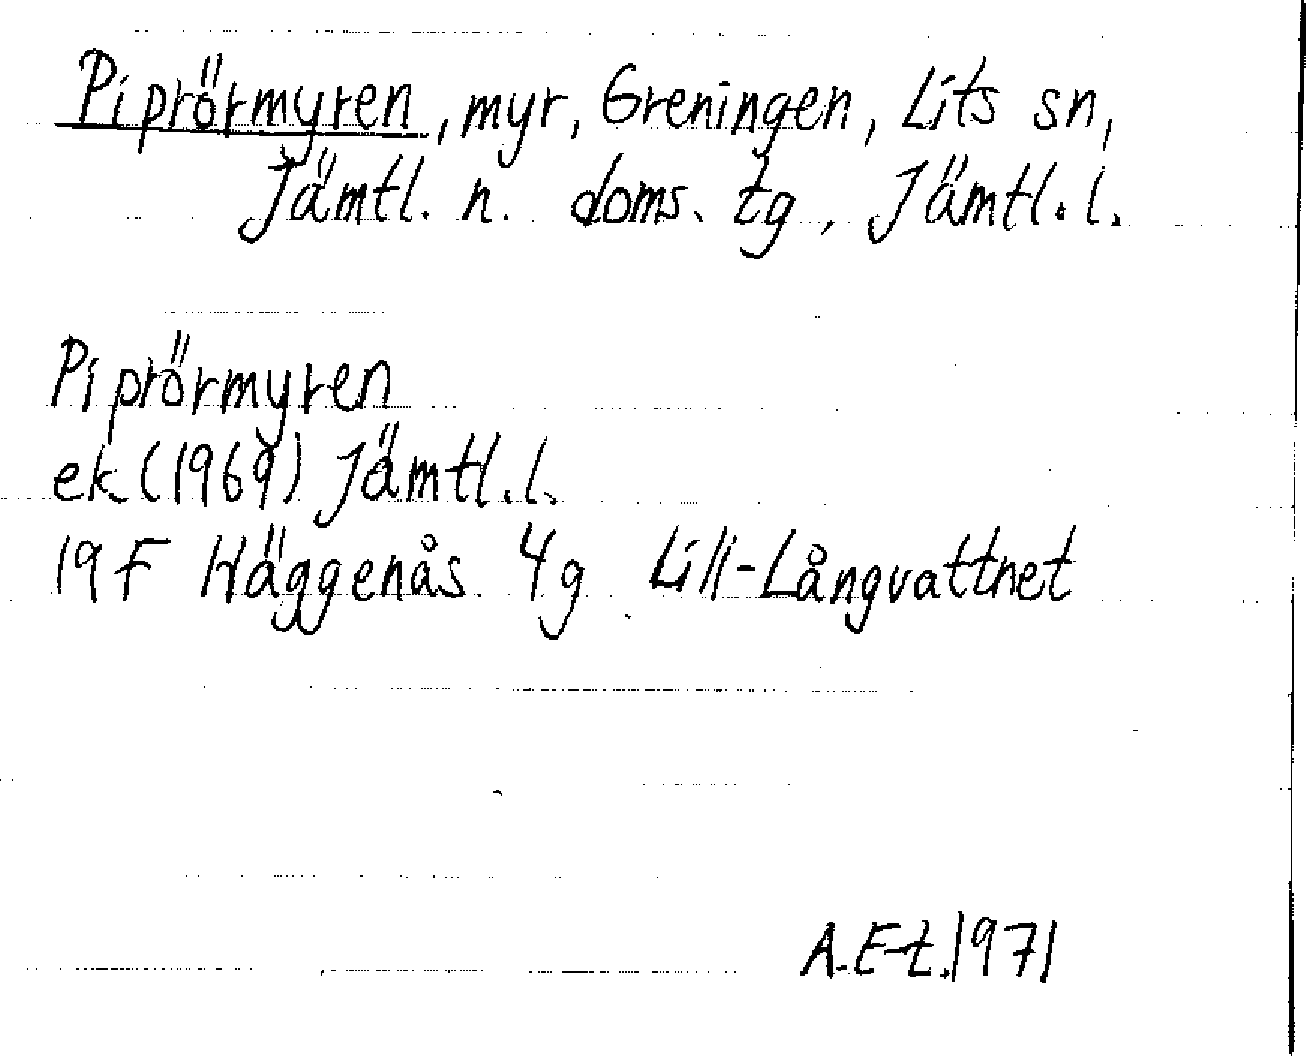 Piprörmyren, myr, Greningen, Lits sn,
Jämtl. n. doms. tg, Jämtl. l.
Piprörmyren
ek (1969) Jämtl. l.
19 F Häggenås 4g Lill-Långvattnet
A.E-t. 1971